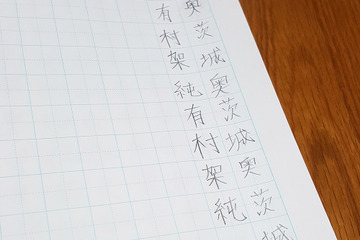 奥茨城奥茨城奥茨城
有村架純有村架純